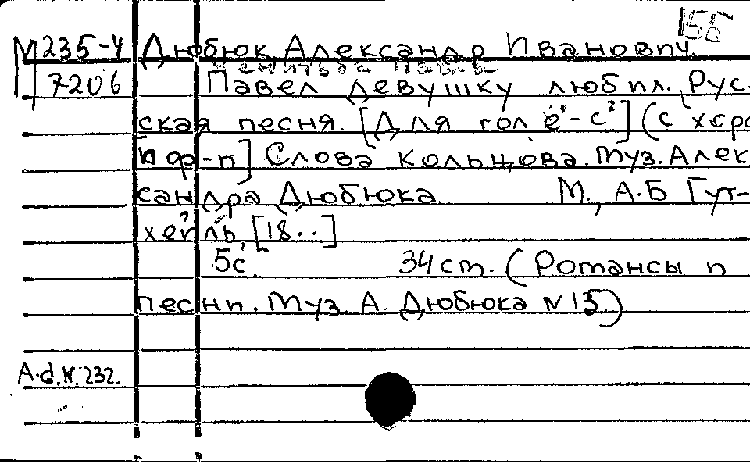 156
М 235-4 Дюбюк, Александр Иванович.
7206 Павел девушку любил. Рус-
ская песня. [Для гол. e¹-c²] (с хором
и ф-п] Слова Кольцова. Муз. Алек-
сандра Дюбюка М., А.Б Гут-
хейль, [18..]
5с. 34 ст. (Романсы и
песни. Муз. А. Дюбюка №15)
A.d.
232.